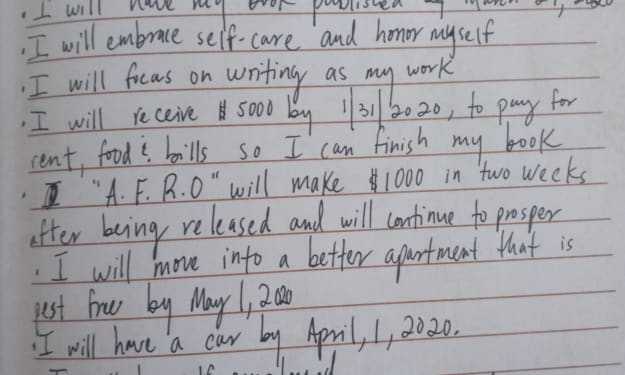 · I will have my book published by March 27, 2020
· I will embrace self-care and honor myself
· I will focus on writing as my work
· I will receive $5000 by 1/31/2020, to pay for
rent, food & bills so I can finish my book
· "A.F.R.O" will make $1000 in two weeks
after being released and will continue to prosper
· I will move into a better apartment that is
pest free by May 1, 2020
· I will have a car by April, 1, 2020.